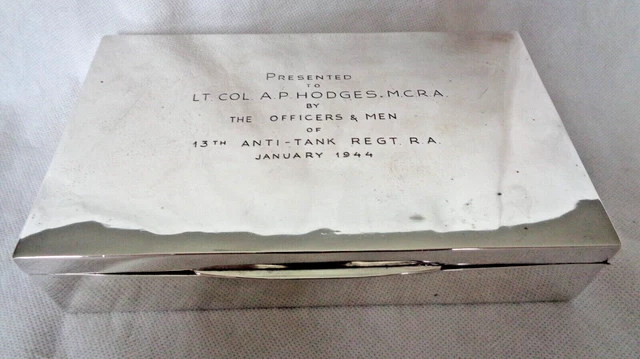 PRESENTED
TO
LT. COL. A.P. HODGES. M.C.R.A.
BY
THE OFFICERS & MEN
OF
13TH ANTI-TANK REGT. R.A.
JANUARY 1944